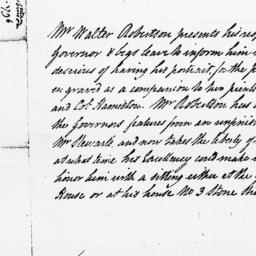 Mr Walter Robertson presents his res
Governor & begs leave to inform him
desirous of having his portrait, for the p
engraved as a companion to two
and Col. Hamilton. Mr Robertson has
the Governors features from an unfinish
Mr Stewarts, and now takes the liberty of
at what time his Excellency could make it
honor him with a sitting either at the
House or at his house No 3 Stone Stre